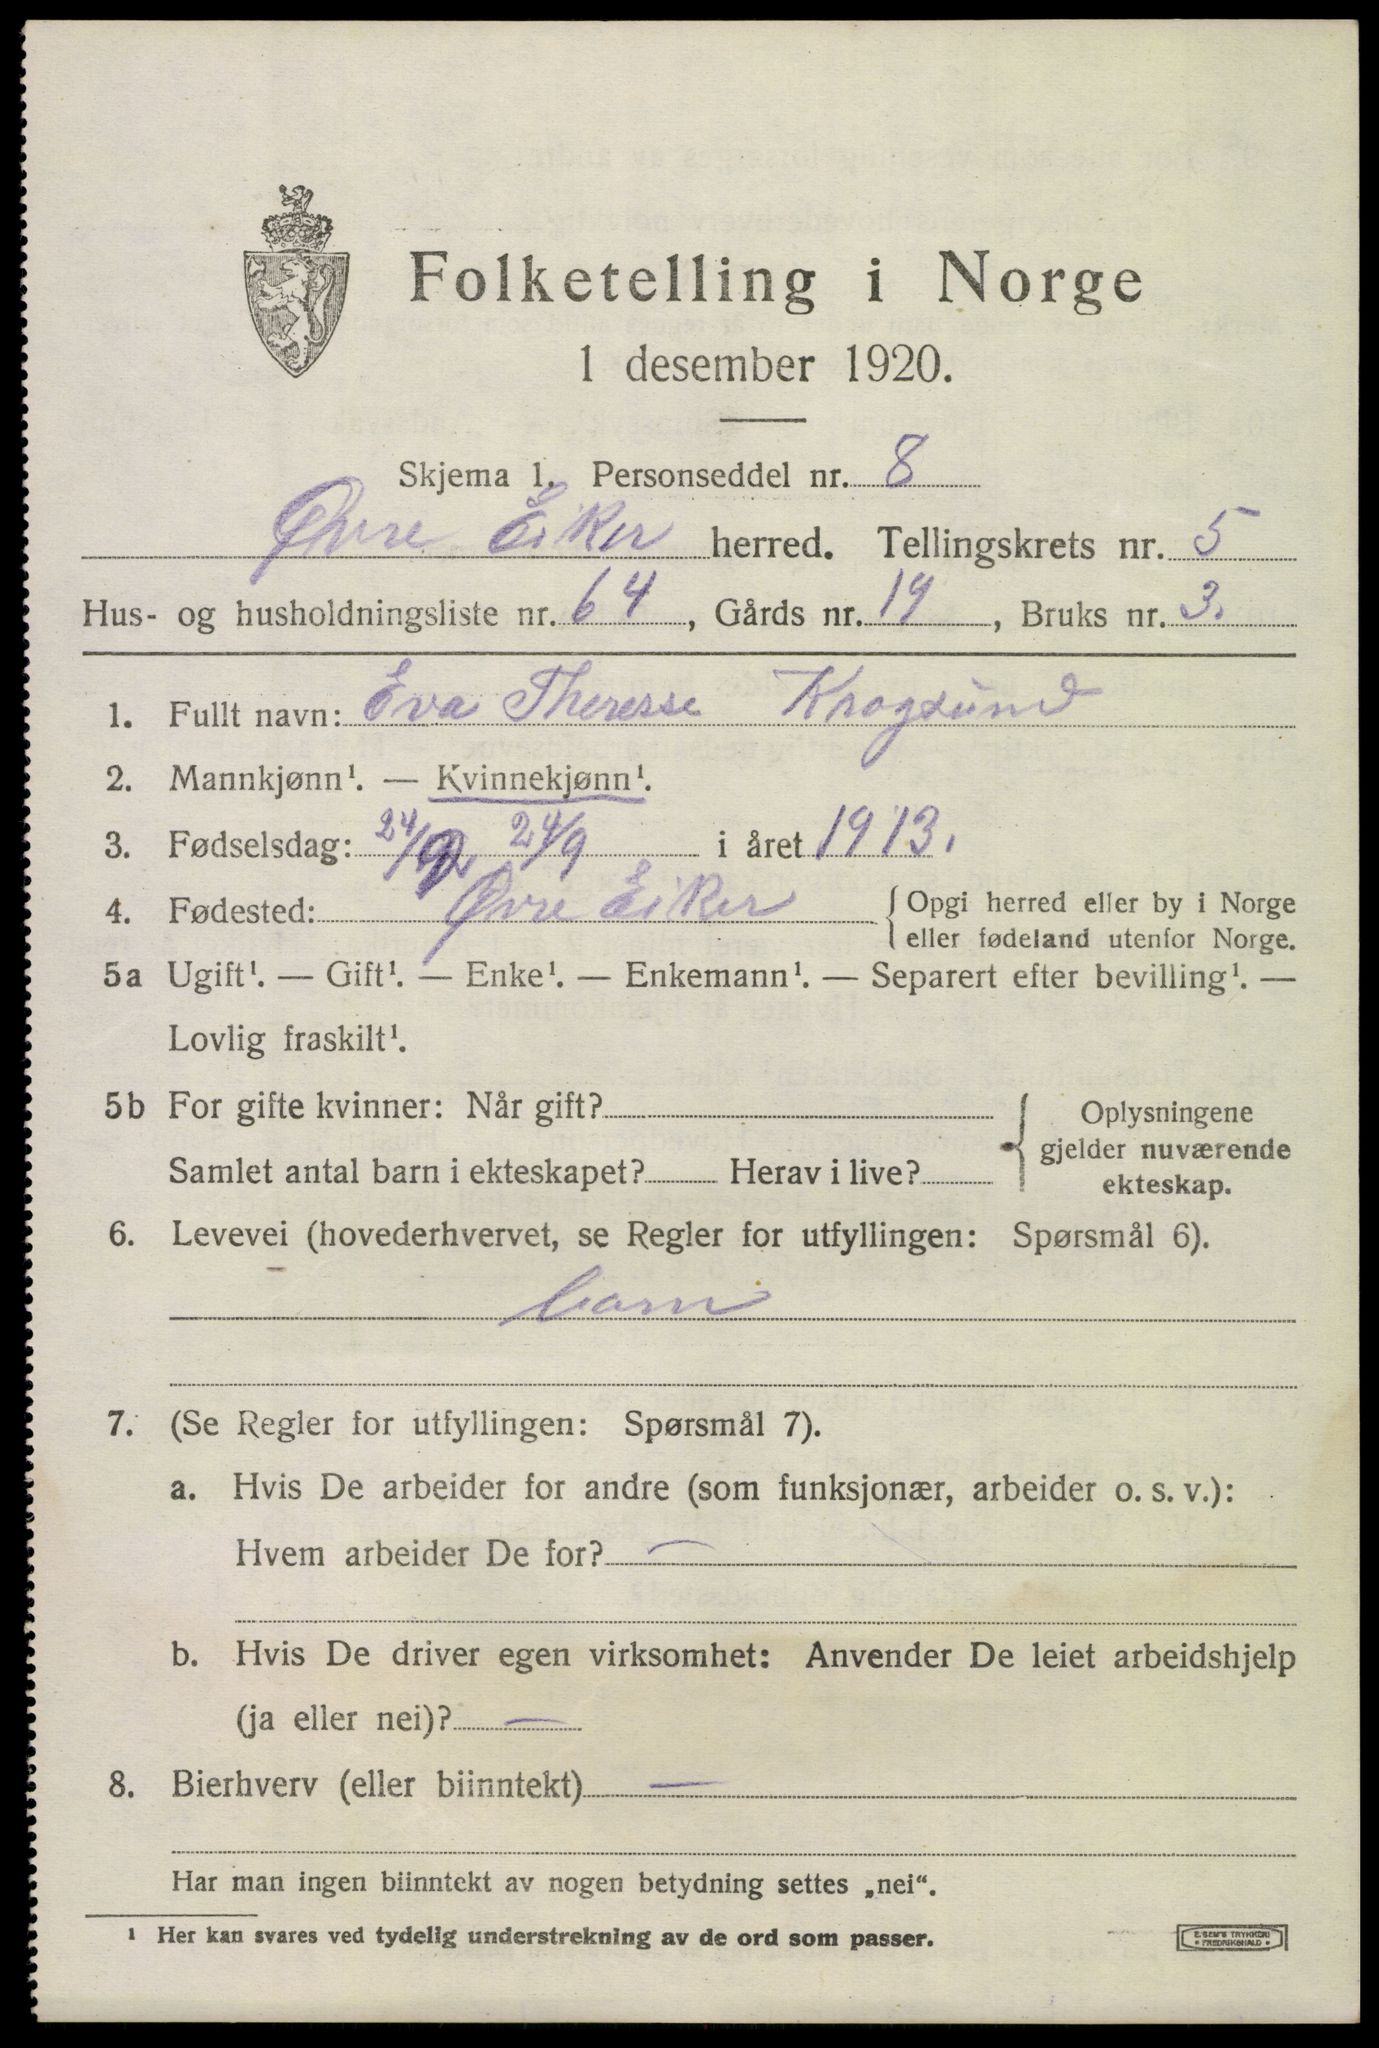 Folketelling i Norge
1 desember 1920.
Skjema 1. Personseddel nr. 8
Øvre Eiker herred. Tellingskrets nr. 5
Hus- og husholdningsliste nr. 64, Gårds nr. 19, Bruks nr. 3.
1. Fullt navn: Eva Theresse Krogsund
2. Mannkjønn¹. — Kvinnekjønn¹.
3. Fødselsdag: 24/9 i året 1913.
4. Fødested: Øvre Eiker { Opgi herred eller by i Norge
eller fødeland utenfor Norge.
5a Ugift¹. — Gift¹. — Enke¹. — Enkemann¹. — Separert efter bevilling¹. —
Lovlig fraskilt¹.
5b For gifte kvinner: Når gift? Oplysningene
gjelder nuværende
Samlet antal barn i ekteskapet? Herav i live? ekteskap.
6. Levevei (hovederhvervet, se Regler for utfyllingen: Spørsmål 6).
barn
7. (Se Regler for utfyllingen: Spørsmål 7).
a. Hvis De arbeider for andre (som funksjonær, arbeider o. s. v.):
Hvem arbeider De for? —
b. Hvis De driver egen virksomhet: Anvender De leiet arbeidshjelp
(ja eller nei)? —
8. Bierhverv (eller biinntekt) —
Har man ingen biinntekt av nogen betydning settes „nei“.
¹ Her kan svares ved tydelig understrekning av de ord som passer.
E. SEM'S TRYKKERI
FREDRIKSHALD